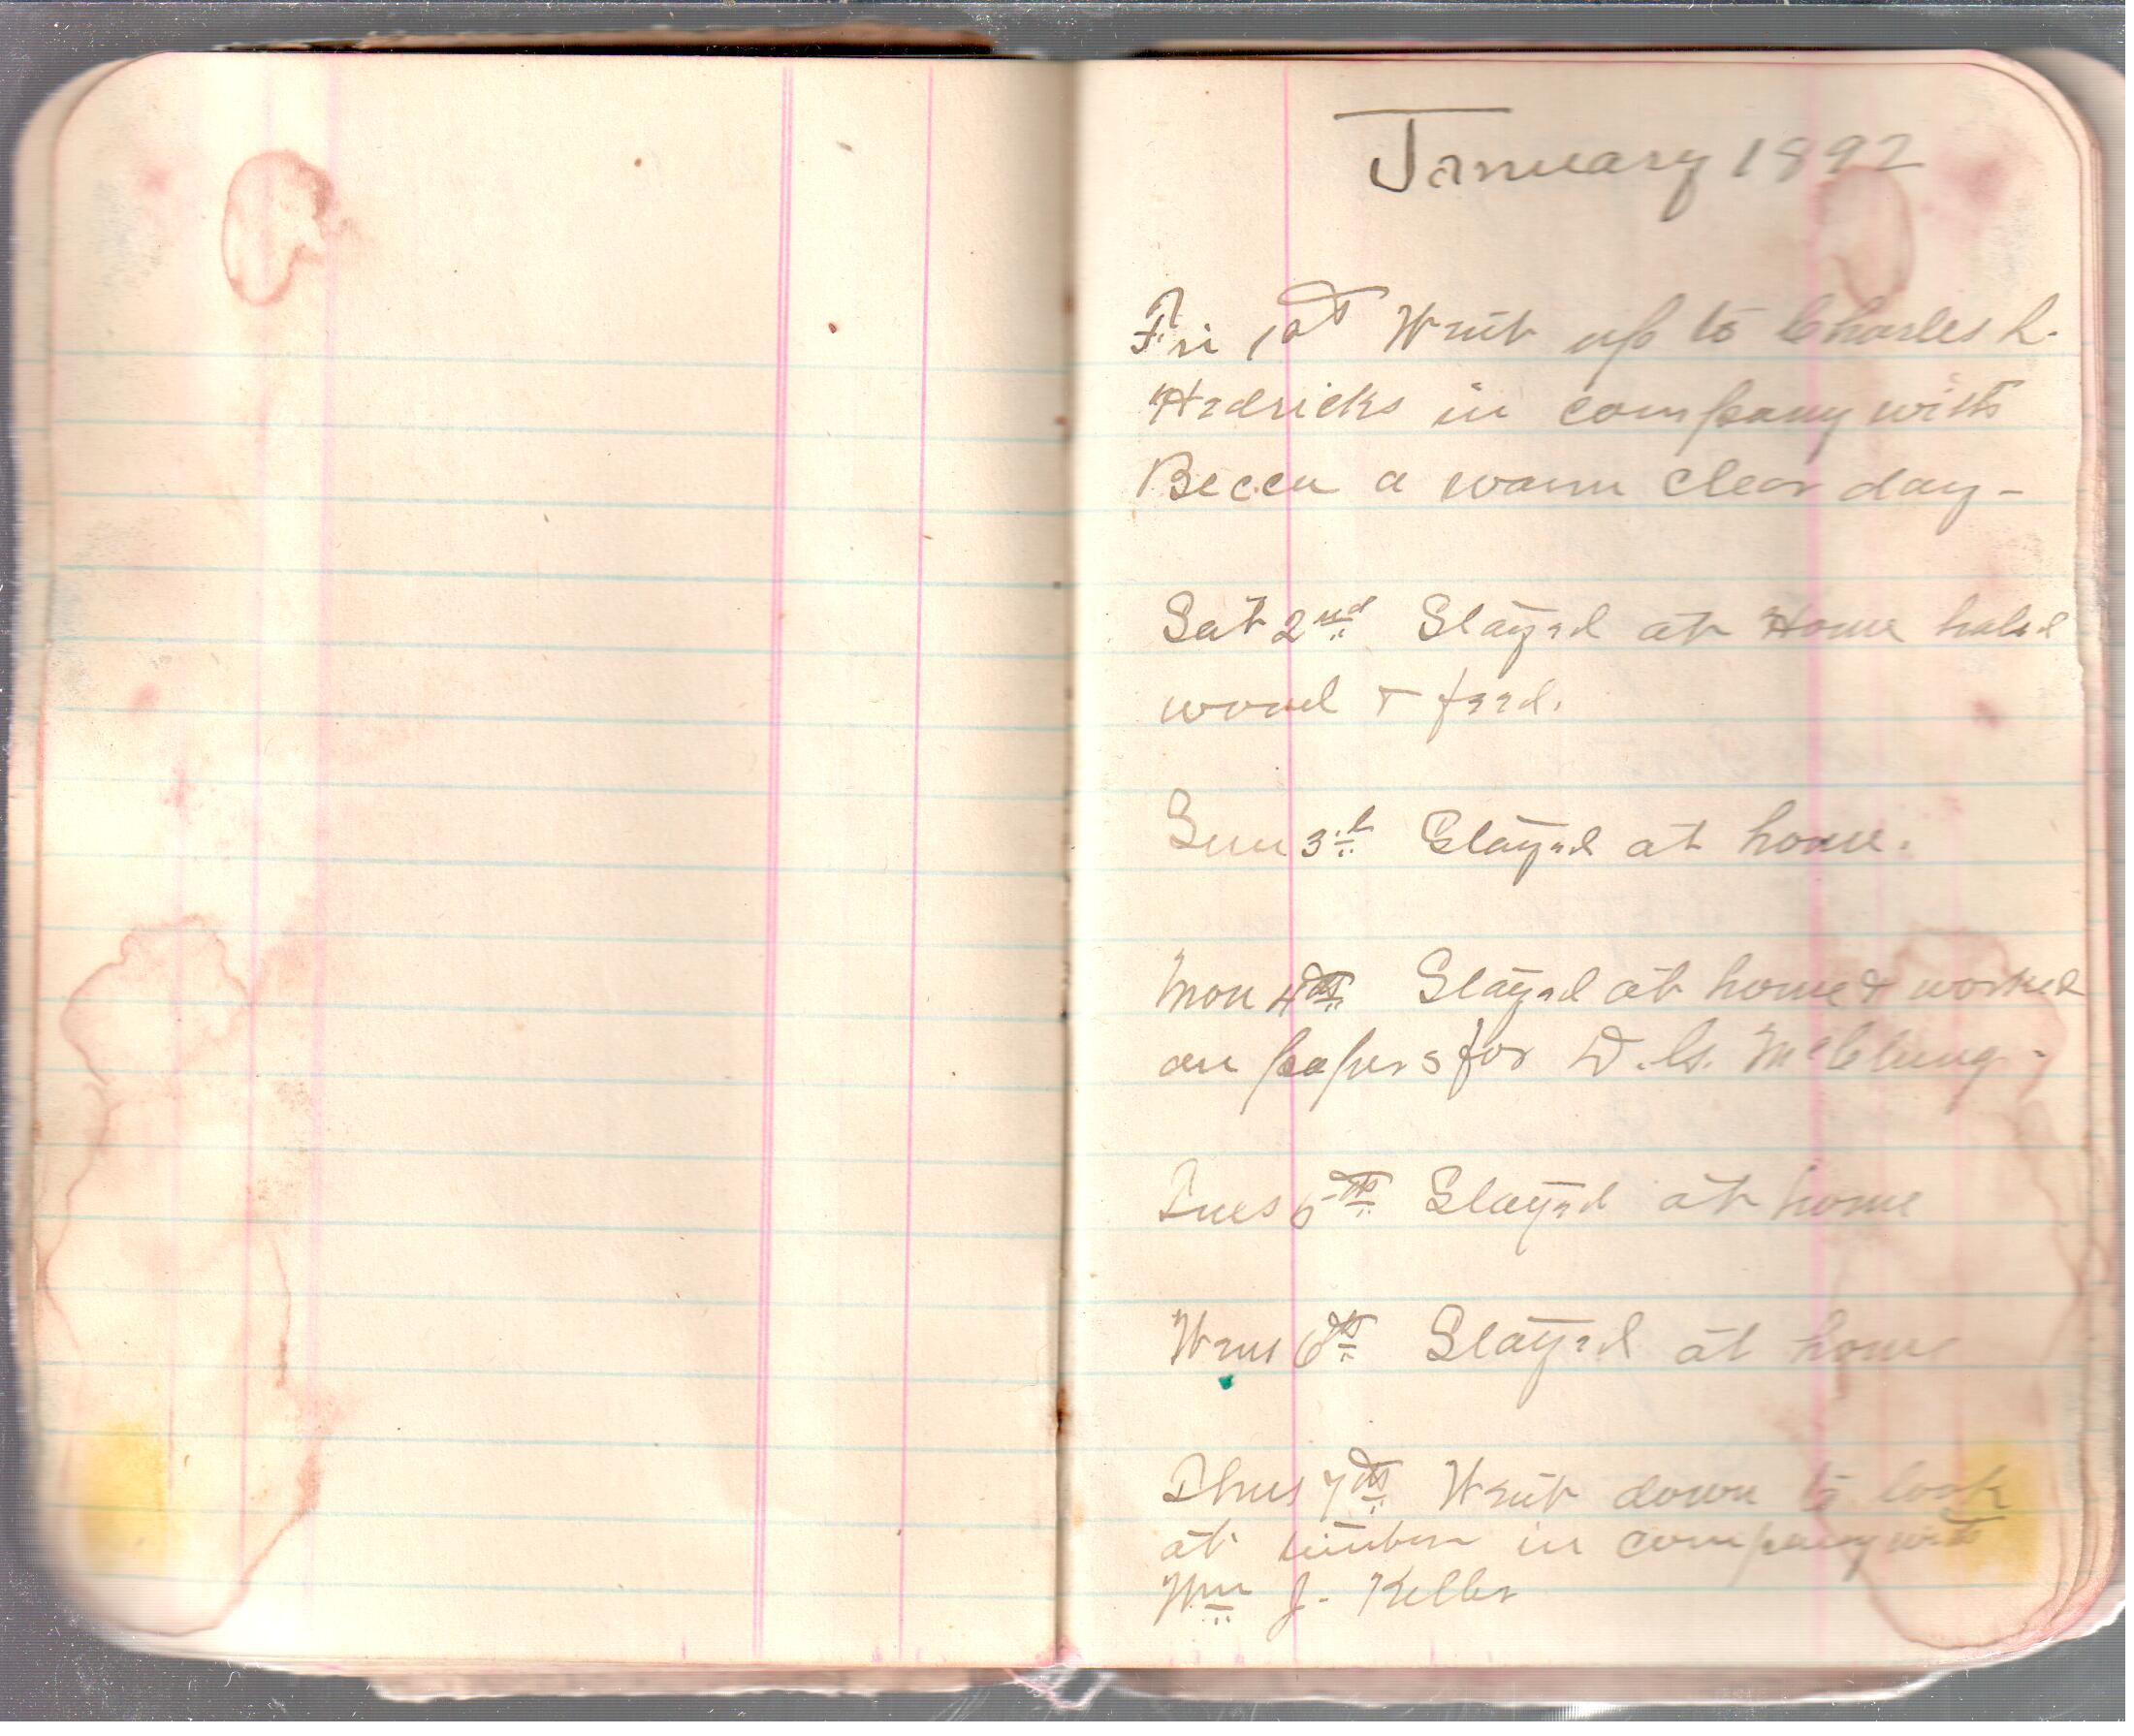 January 1892
Fri 1st Went up to Charles L.
Hedricks in company with
Becca a warm clear day -
Sat 2nd Stayed at Home haled
wood & feed.
Sun 3rd Stayed at home.
Mon 4th Stayed at home & worked
on papers for D. C. McClung -
Tues 5th Stayed at home
Wens 6th Stayed at home
Thus 7th Went down to look
at timber in company with
Wm J. Keller